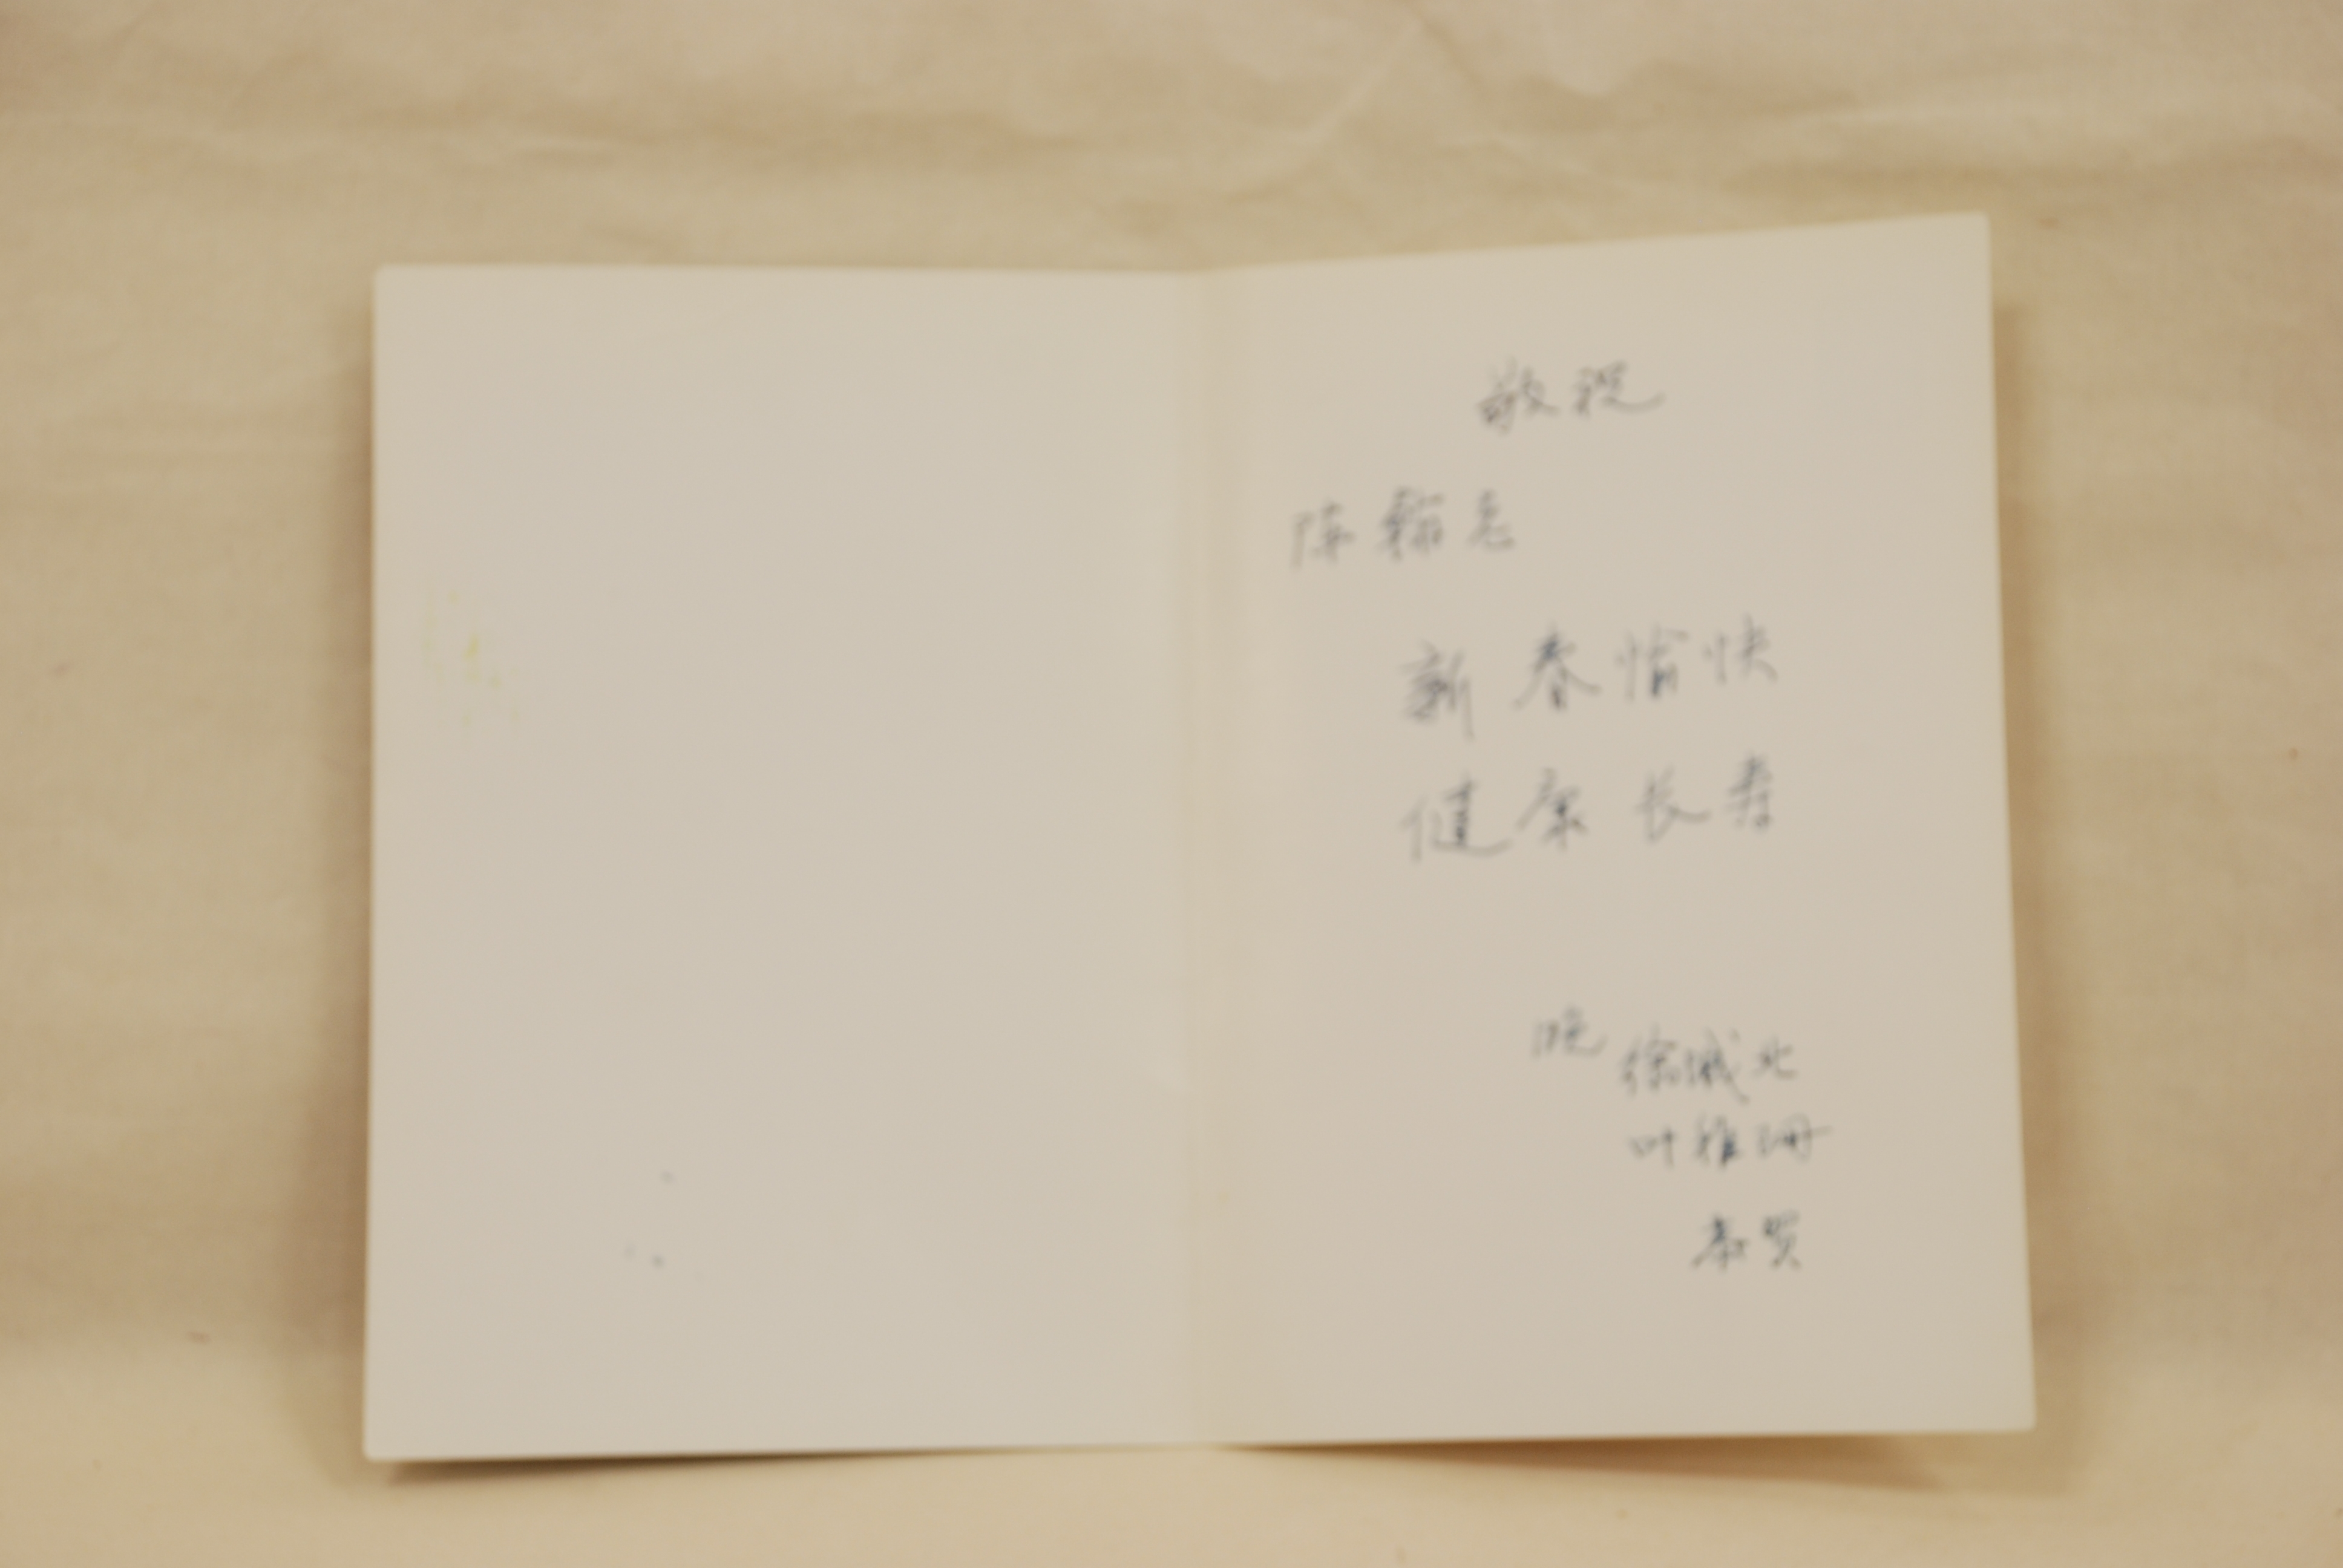 敬祝
陈翰老
新春愉快
健康长寿
晚 徐城北
叶稚珊
恭贺